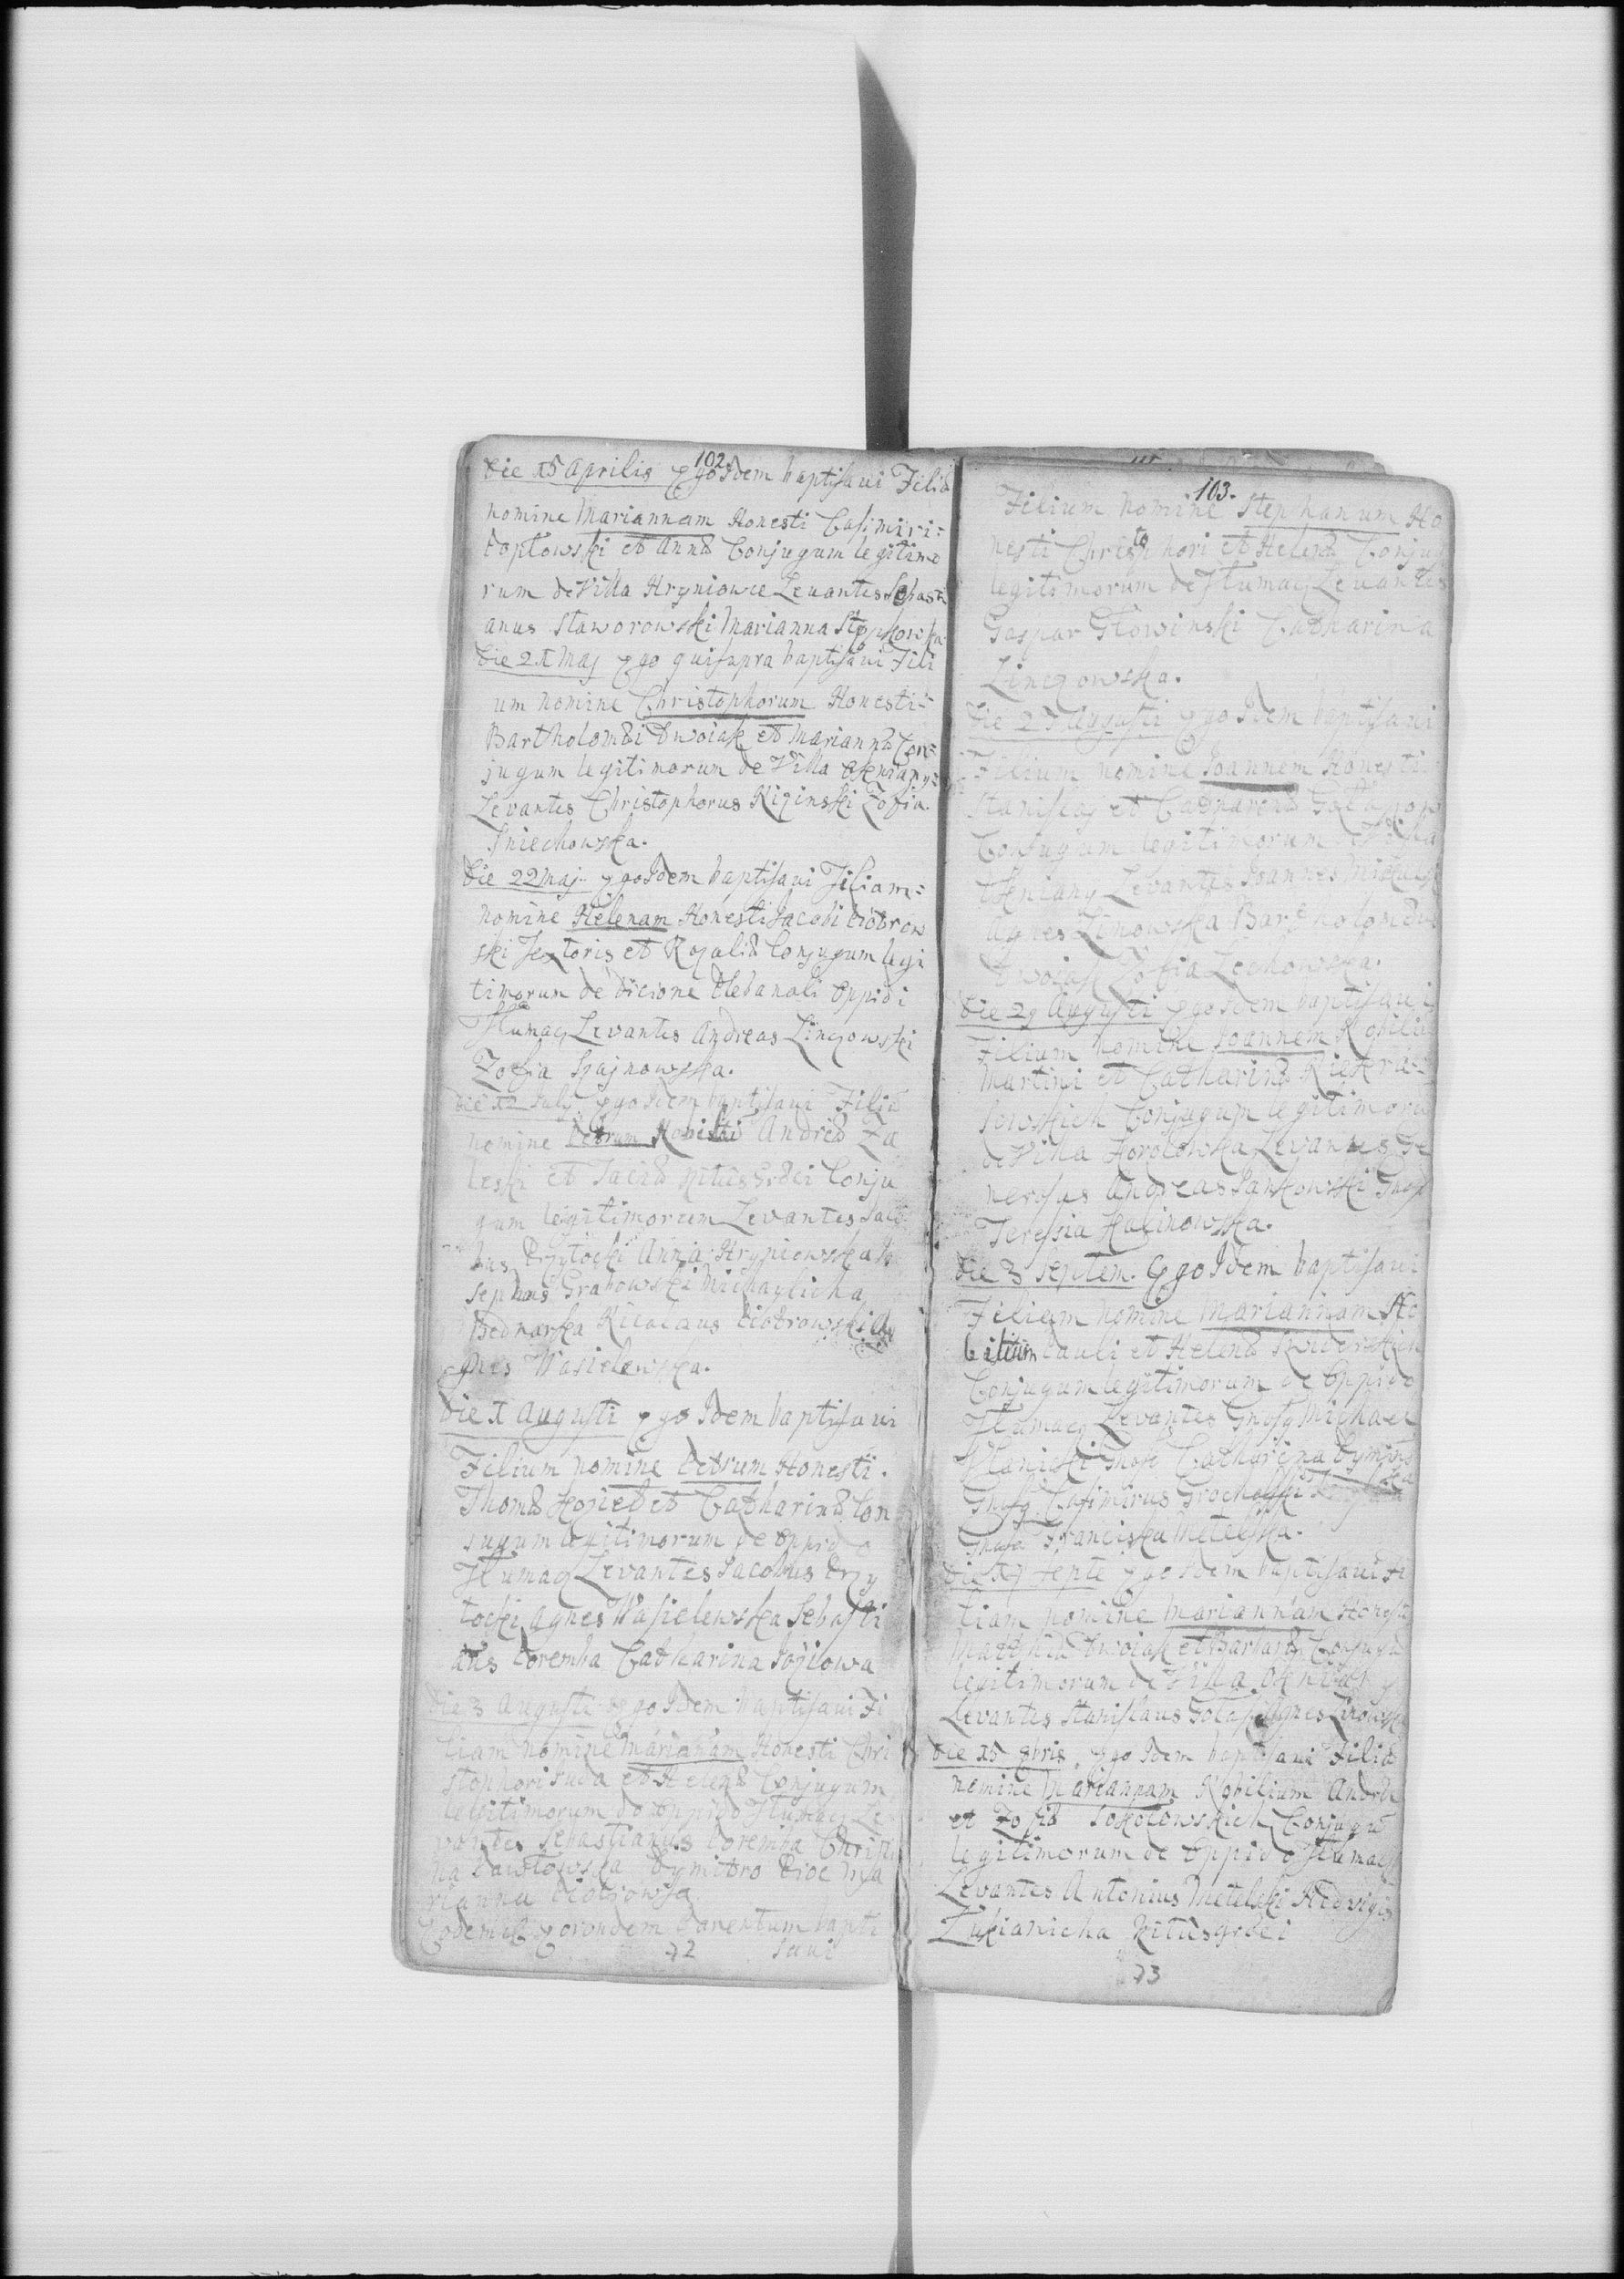 102.
Die 15 Aprilis Ego Idem baptisavi Filiã
nomine Mariannam Honesti Casimiri=
Poplowski et Annæ Conjugum legitimo
rum de Villa Hryniowce Levantes Sebasti
anus Staworowski Marianna
Die 21 Maj Ego qui supra baptisavi Fili
um nomine Christophorum Honesti=
Bartholomæi Dwoiak et Mariannæ Con=
jugum legitimorum de Villa
Levantes Christophorus Kizinski Zofia
Sniechowska.
Die 22 Maj. Ego Idem baptisavi Filiam=
nomine Helenam Honesti Jacobi Piotrow
ski Textoris et Rozaliæ Conjugum legi
timorum de Dicione Plebanali Oppidi
Tłumacz Levantes Andreas Linczowski
Zofia Szajnowska.
Die 12 July Ego Idem baptisavi Filiũ
nomine Petrum Andreæ Za
leski et Ritus Græci Conju
gum legitimorum Levantes Jaco
bus Przytocki Anna Hryniowska Jo
sephus Grabowski Michaylicha
Bednarka Nicolaus Piotrowski A
gnes Wasielewska.
Die 1 Augusti Ego Idem baptisavi
Filium nomine Petrum Honesti.
Thomæ Kopiec et Catharinæ Con
jugum legitimorum de Oppido
Tłumacz Levantes Jacobus Przy
tocki Agnes Wasielewska Sebasti
anus Poremba Catharina
Die 3 Augusti Ego Idem baptisavi Fi
liam nomine Mariañam Honesti Chri
stophori Ruda et Helenæ Conjugum
legitimorum de Oppido Tłumacz Le
vantes Sebastianus Poremba Christi
na Pawłowska Dymitro Ma
rianna Piotrowska
Eodem die Eorundem Parentum bapti
72 savi
103.
Filium nomine Stephanum Ho
nesti Christophori et Helenæ Conjug
legitimorum de Tłumacz Levantes
Gaspar Głowinski Catharina
Linczowska.
Die 27 Augusti Ego Idem baptisavi
Filium nomine Joannem Honesti
Stanislaj et Catharinæ
Conjugum legitimorum de Villa
Levantes Joannes
Agnes Linowska Bartholomæus
Dwoiak Zofia Lechowska.
Die 29 Augusti Ego Idem baptisavi
Filium nomine Joannem Nobiliũ
Martini et Catharinæ Piekra=
sowskich Conjugum legitimorũ
de Villa Horolowka Levantes Ge
nerosus Andreas Jankowski
Teressia Kalinowska.
Die 3 Septem. Ego Idem baptisavi
Filiam nomine Mariannam No
bilium Pauli et Helenæ Swiderskich
Conjugum legitimorum de Oppido
Tłumacz Levantes Michael
Catharina
Casimirus Grocholski
Francisca Metelska.
Die Septe Ego Idem baptisavi Fi
liam nomine Mariannam Honesti
Matthiæ Dwoiak et Barbaræ Conjugũ
legitimorum de Villa
Levantes Stanislaus Agnes Linowska
Die 15 8bris Ego Idem baptisavi Filiã
nomine Mariannam Nobilium Andreæ
et Zofiæ Sokołowskich Conjugũ
legitimorum de Oppido Tłumacz
Levantes Antonius Metelski Hedvigis
Łukianicha Ritûs græci
73